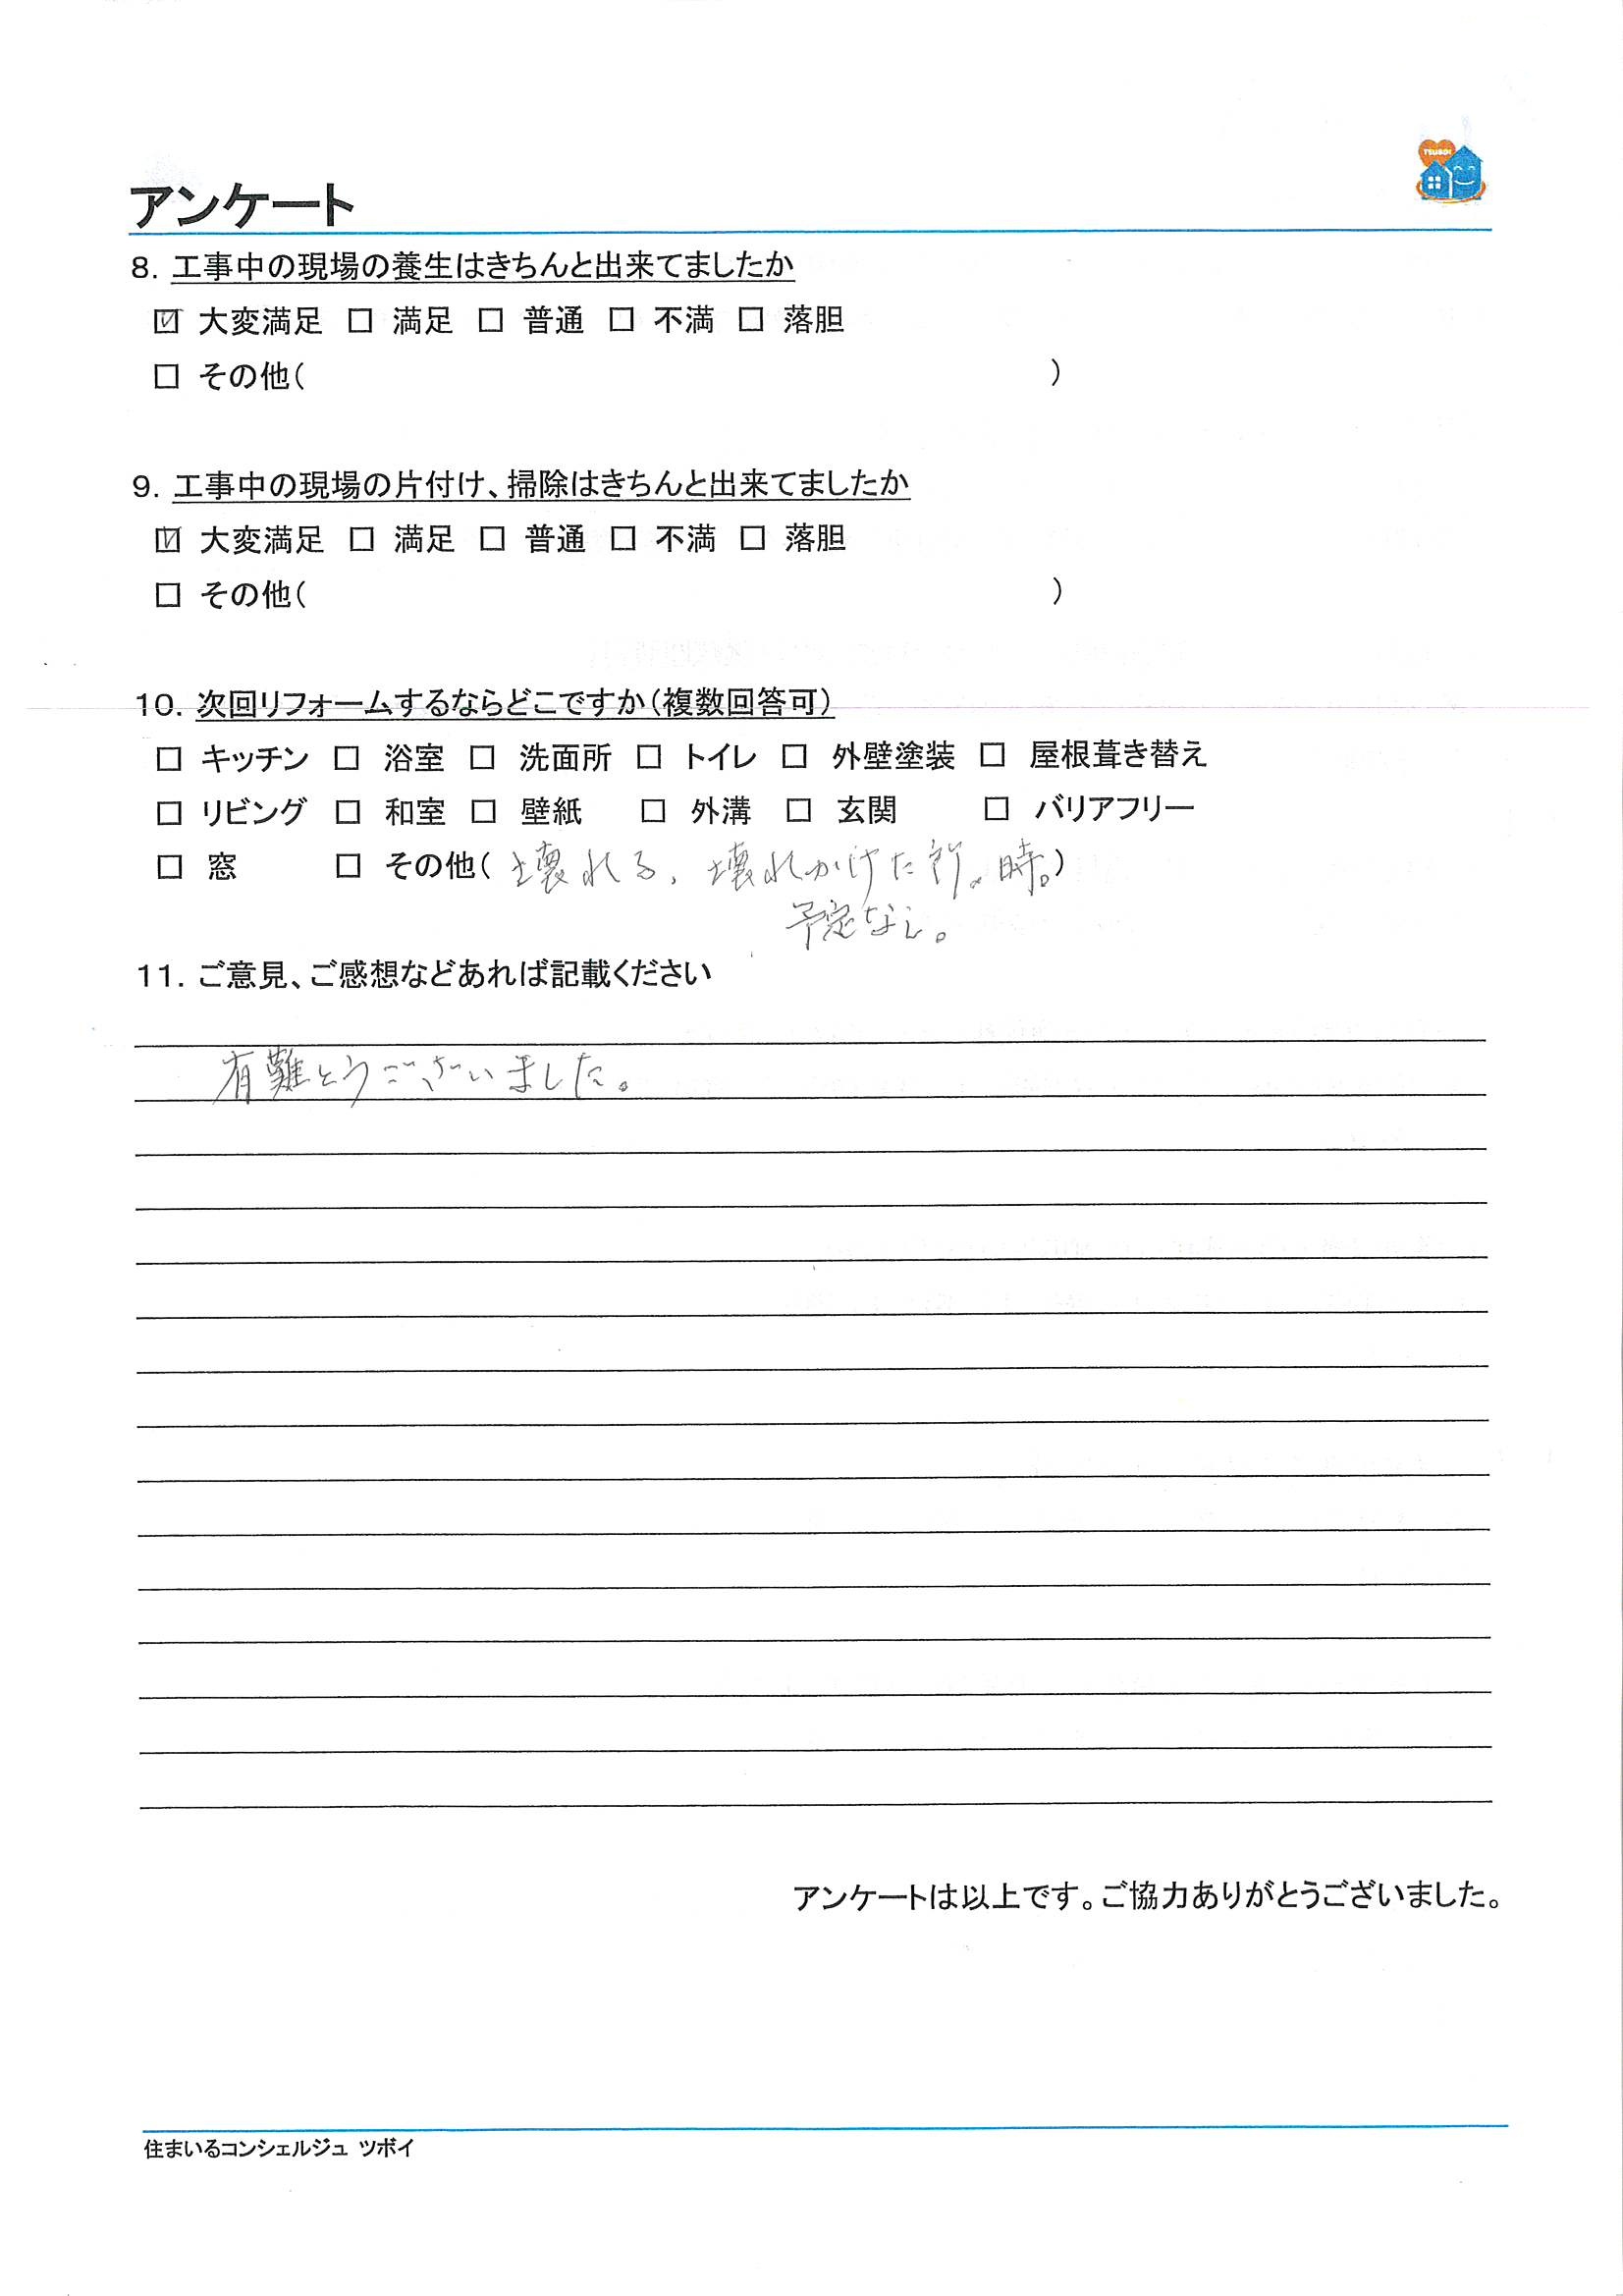 アンケート
TSUBOI
8. 工事中の現場の養生はきちんと出来てましたか
☑ 大変満足 □ 満足 □ 普通 □ 不満 □ 落胆
□ その他( )
9. 工事中の現場の片付け、掃除はきちんと出来てましたか
☑ 大変満足 □ 満足 □ 普通 □ 不満 □ 落胆
□ その他( )
10. 次回リフォームするならどこですか(複数回答可)
□ キッチン □ 浴室 □ 洗面所 □ トイレ □ 外壁塗装 □ 屋根葺き替え
□ リビング □ 和室 □ 壁紙 □ 外溝 □ 玄関 □ バリアフリー
□ 窓 □ その他( 壊れる、壊れかけた 時。)
予定なし。
11. ご意見、ご感想などあれば記載ください
有難とうございました。
アンケートは以上です。ご協力ありがとうございました。
住まいるコンシェルジュ ツボイ